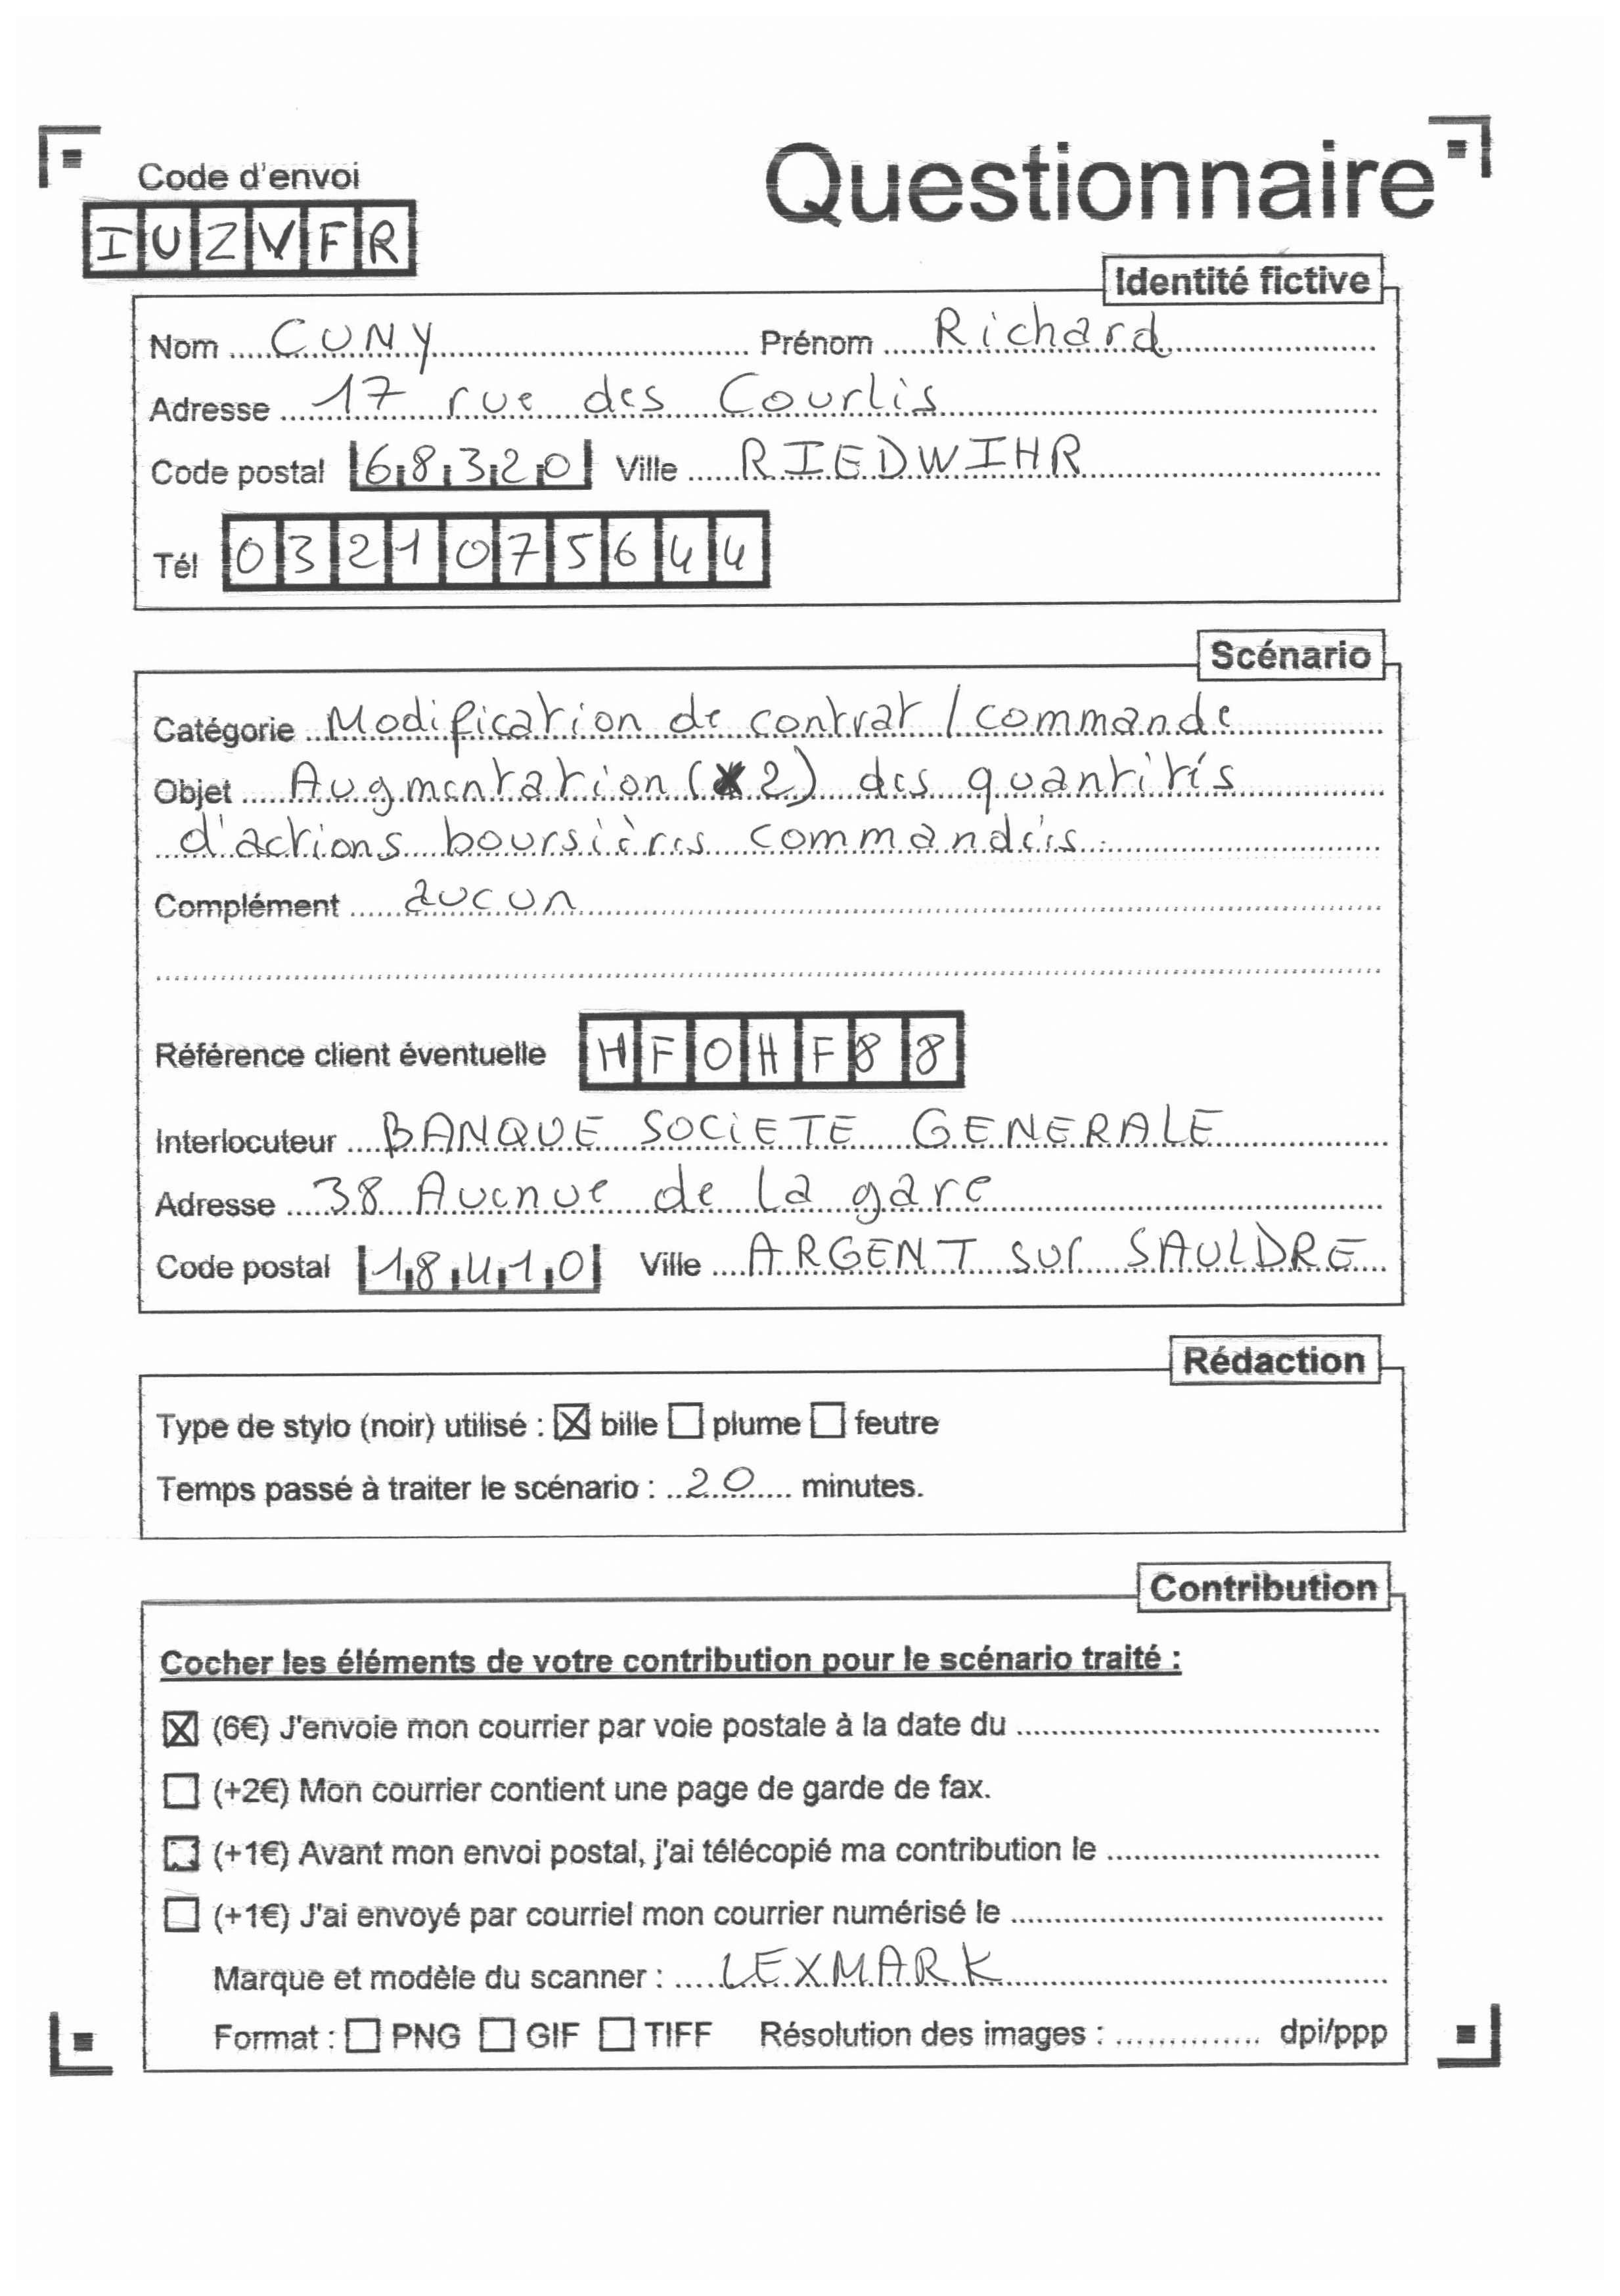 Code d'envoi
Questionnaire
IUZVFR
Identité fictive
Nom CUNY Prénom Richard
Adresse 17 rue des Courlis
Code postal 68320 Ville RIEDWIHR
Tél 0321075644
Scénario
Catégorie Modification de contrat / commande
Objet Augmentation (x2) des quantités
d'actions boursières commandées.
Complément aucun
Référence client éventuelle HFOHF88
Interlocuteur BANQUE SOCIETE GENERALE
Adresse 38 Avenue de la gare
Code postal 18410 Ville ARGENT sur SAULDRE
Rédaction
Type de stylo (noir) utilisé : ☒ bille ☐ plume ☐ feutre
Temps passé à traiter le scénario : 20 minutes.
Contribution
Cocher les éléments de votre contribution pour le scénario traité :
☒ (6€) J'envoie mon courrier par voie postale à la date du
☐ (+2€) Mon courrier contient une page de garde de fax.
☐ (+1€) Avant mon envoi postal, j'ai télécopié ma contribution le
☐ (+1€) J'ai envoyé par courriel mon courrier numérisé le
Marque et modèle du scanner : LEXMARK
Format : ☐ PNG ☐ GIF ☐ TIFF Résolution des images : dpi/ppp